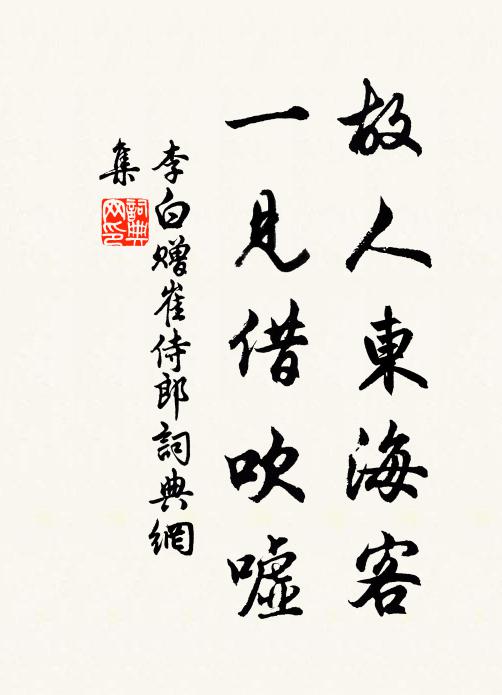 故人東海客
一見借吹嘘
李白贈崔侍郎詞典網
集
詞典
网印